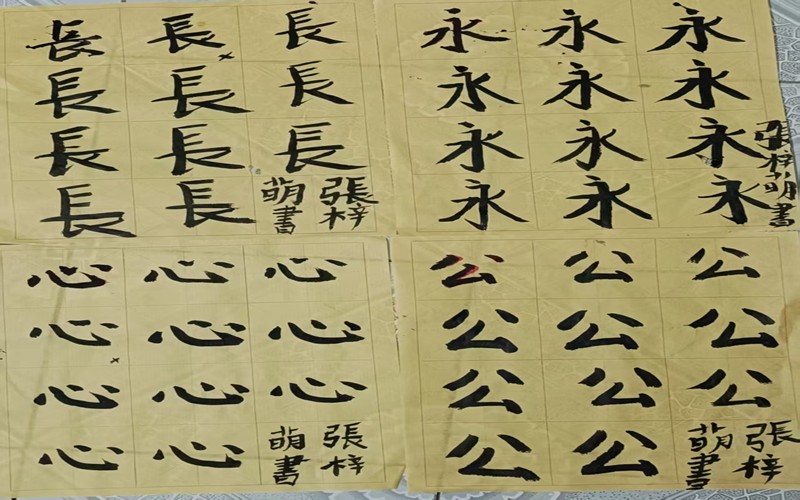 長長長
長長長
長長長
長長
張梓
萌書
永永永
永永永
永永永
永永永
張梓萌書
心心心
心心心
心心心
心心
張梓
萌書
公公公
公公公
公公公
公公
張梓
萌書